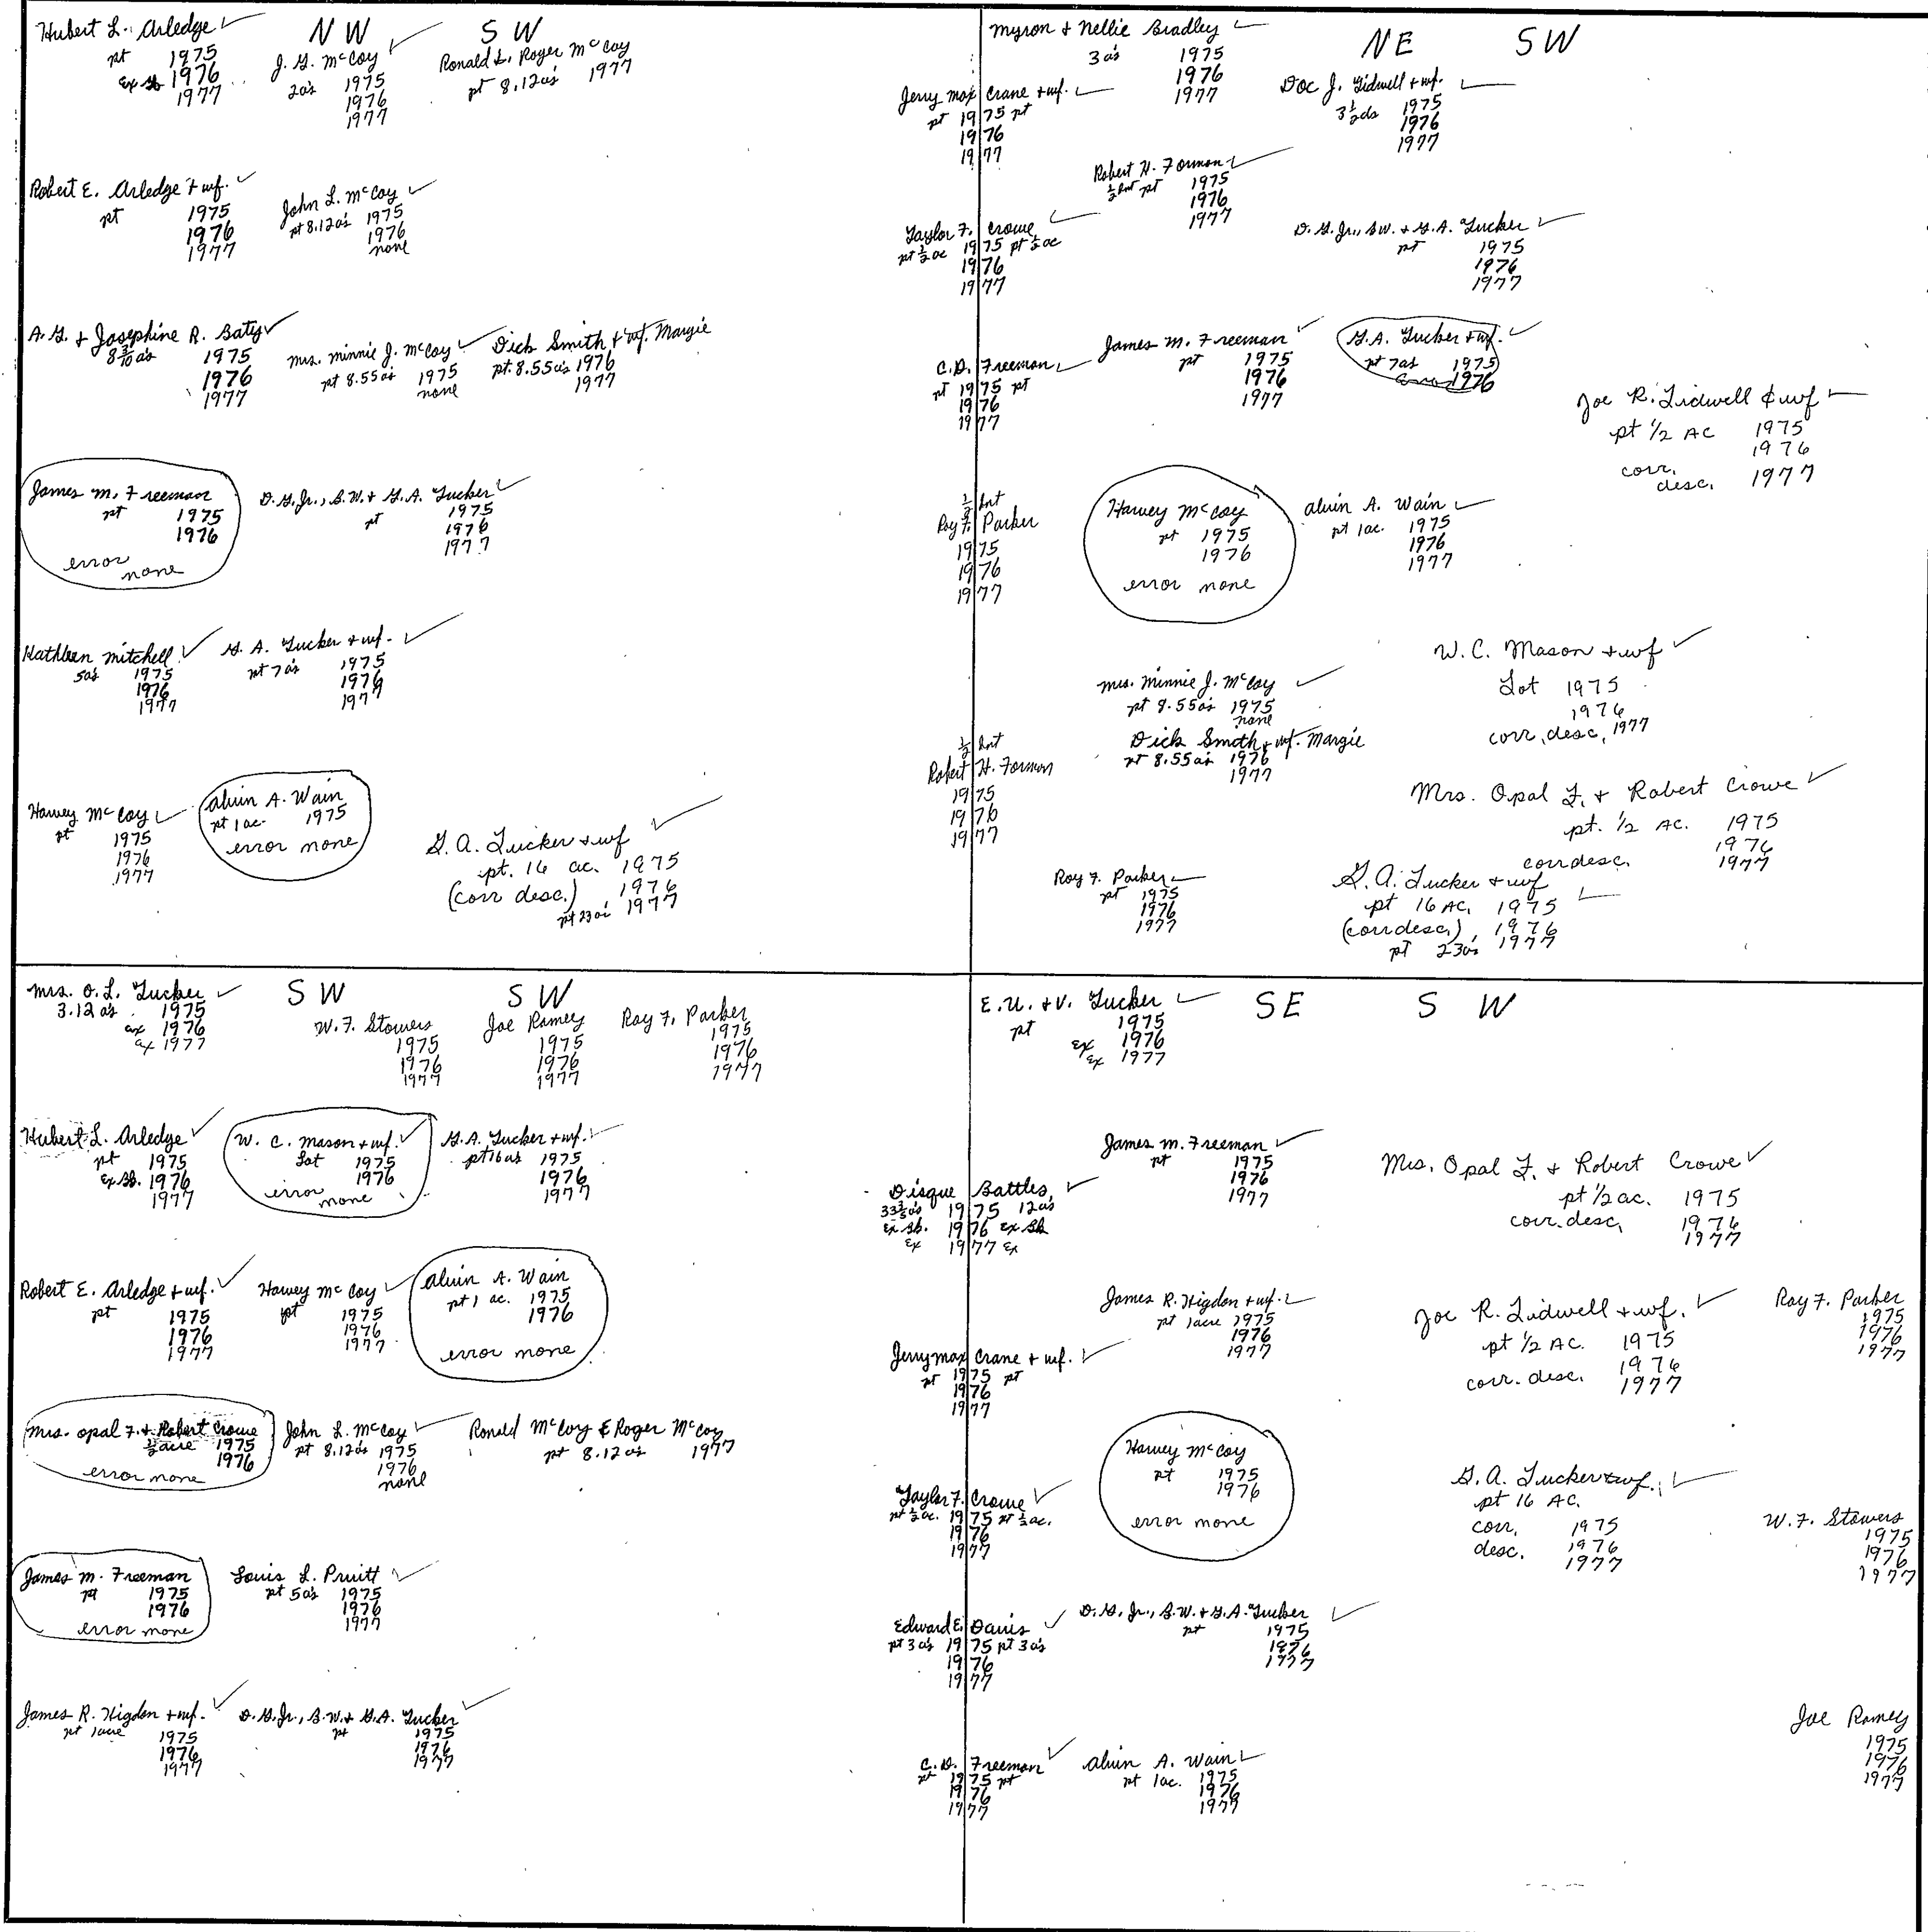 NW SW
Hubert L. Arledge
pt 1975
1976
1977
J. G. McCoy
2a's 1975
1976
1977
Ronald L, Roger McCoy
pt 8.12a's 1977
Robert E. Arledge + wf.
pt 1975
1976
1977
John L. McCoy
pt 8.12a's 1975
1976
none
A. G. + Josephine R. Baty
8 3/10 a's 1975
1976
1977
Mrs. Minnie J. McCoy
pt 8.55a's 1975
none
Dick Smith + wf. Margie
pt. 8.55a's 1976
1977
James M. Freeman
pt 1975
1976
error
none
D. G. Jr., B. W. + G. A. Tucker
pt 1975
1976
1977
Kathleen Mitchell
5a's 1975
1976
1977
G. A. Tucker + wf.
pt 7a's 1975
1976
1977
Harvey McCoy
pt 1975
1976
1977
Alvin A. Wain
pt 1ac. 1975
error none
G. A. Tucker + wf
pt. 16 ac. 1975
(corr desc.) 1976
pt 23a's 1977
NE SW
Myron + Nellie Bradley
3a's 1975
1976
1977
Jerry Max Crane + wf.
pt 1975 pt
1976
1977
Doc J. Tidwell + wf.
3 1/2 a's 1975
1976
1977
Robert H. Forman
1/2 Int pt 1975
1976
1977
Taylor F. Crowe
pt 1/2 ac 1975 pt 1/2 ac
1976
1977
D. G. Jr., B. W. + G. A. Tucker
pt 1975
1976
1977
C. D. Freeman
pt 1975 pt
1976
1977
James M. Freeman
pt 1975
1976
1977
G. A. Tucker + wf.
pt 7a's 1975
1976
Joe R. Tidwell & wf
pt 1/2 AC 1975
1976
corr. desc. 1977
1/2 Int
Roy F. Parker
1975
1976
1977
Harvey McCoy
pt 1975
1976
error none
Alvin A. Wain
pt 1ac. 1975
1976
1977
Mrs. Minnie J. McCoy
pt 8.55a's 1975
none
W. C. Mason + wf
Lot 1975
1976
corr. desc. 1977
1/2 Int
Robert H. Forman
1975
1976
1977
Dick Smith + wf. Margie
pt 8.55a's 1976
1977
Mrs. Opal F. + Robert Crowe
pt. 1/2 AC. 1975
1976
corr desc. 1977
Roy F. Parker
pt 1975
1976
1977
G. A. Tucker + wf
pt 16 AC. 1975
(corr desc.) 1976
pt 23a's 1977
SW SW
Mrs. O. L. Tucker
3.12 a's 1975
ex 1976
ex 1977
W. F. Stowers
1975
1976
1977
Joe Ramey
1975
1976
1977
Roy F. Parker
1975
1976
1977
Hubert L. Arledge
pt 1975
Ex Sb. 1976
1977
W. C. Mason + wf.
Lot 1975
1976
error
none
G. A. Tucker + wf.
pt 16 a's 1975
1976
1977
Robert E. Arledge + wf.
pt 1975
1976
1977
Harvey McCoy
pt 1975
1976
1977
Alvin A. Wain
pt 1 ac. 1975
1976
error none
Mrs. Opal F. + Robert Crowe
1/2 acre 1975
1976
error none
John L. McCoy
pt 8.12a's 1975
1976
none
Ronald McCoy & Roger McCoy
pt 8.12 a's 1977
James M. Freeman
pt 1975
1976
error none
Louis L. Pruitt
pt 5a's 1975
1976
1977
James R. Higdon + wf.
pt 1acre 1975
1976
1977
D. G. Jr., B. W. + G. A. Tucker
pt 1975
1976
1977
SE SW
E. U. + V. Tucker
pt 1975
Ex 1976
Ex 1977
Disque Battles
33 3/5 a's 1975 12a's
Ex Sb. 1976 Ex Sb
Ex 1977 Ex
James M. Freeman
pt 1975
1976
1977
Mrs. Opal F. + Robert Crowe
pt 1/2 ac. 1975
corr. desc. 1976
1977
Jerry Max Crane + wf.
pt 1975 pt
1976
1977
James R. Higdon + wf.
pt 1acre 1975
1976
1977
Joe R. Tidwell + wf.
pt 1/2 AC. 1975
1976
corr. desc. 1977
Roy F. Parker
1975
1976
1977
Taylor F. Crowe
pt 1/2 ac. 1975 pt 1/2 ac.
1976
1977
Harvey McCoy
pt 1975
1976
error none
G. A. Tucker + wf.
pt 16 AC.
corr. 1975
desc. 1976
1977
W. F. Stowers
1975
1976
1977
Edward E. Davis
pt 3a's 1975 pt 3a's
1976
1977
D. G. Jr., B. W. + G. A. Tucker
pt 1975
1976
1977
C. D. Freeman
pt 1975 pt
1976
1977
Alvin A. Wain
pt 1ac. 1975
1976
1977
Joe Ramey
1975
1976
1977